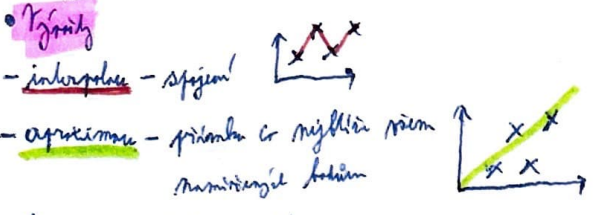 - interpolace - spojení
- aproximace - přímka co nejblíže všem
naměřených bodům